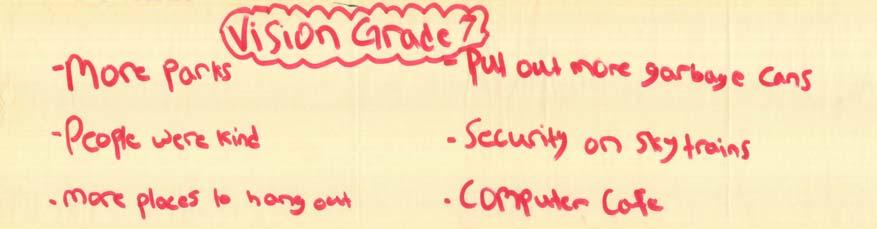 Vision Grade 7
-More parks
-People were kind
. more places to hang out
- Put out more garbage cans
. Security on sky trains
. Computer Cafe